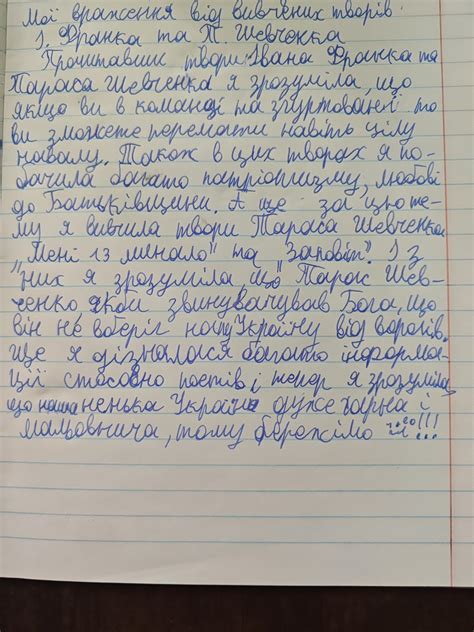 Мої враження від вивчених творів
І. Франка та Т. Шевченка
Прочитавши твори Івана Франка та
Тараса Шевченка я зрозуміла, що
якщо ви в команді та згуртовані то
ви зможете перемагти навіть цілу
навалу. Також в цих творах я по-
бачила багато патріотизму, любові
до Батьківщини. А ще за цю те-
му я вивчила твори Тараса Шевченка
"Мені 13 минало" та "Заповіт". І з
них я зрозуміла що Тарас Шев-
ченко звинувачував Бога, що
він не вберіг нашу Україну від ворогів.
Ще я дізналася багато інформа-
ції стосовно поетів і тепер я зрозуміла
що наша ненька Україна дуже гарна і
мальовнича, тому бережімо її!!!